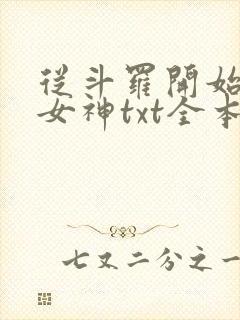 從斗羅開始
女神txt全本
七又二分之一